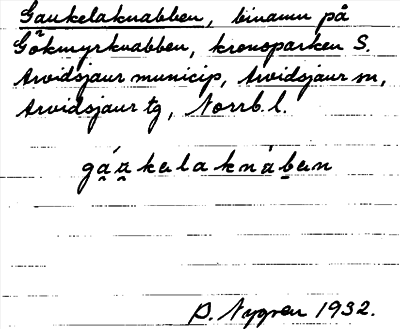 Gaukelaknabben, binamn på
Gökmyrknabben, kronoparken S.
Arvidsjaur municip, Arvidsjaur sn,
Arvidsjaur tg, Norrb. l.
ga̰´a̰kelaknàbe̮n
D. Nygren 1932.